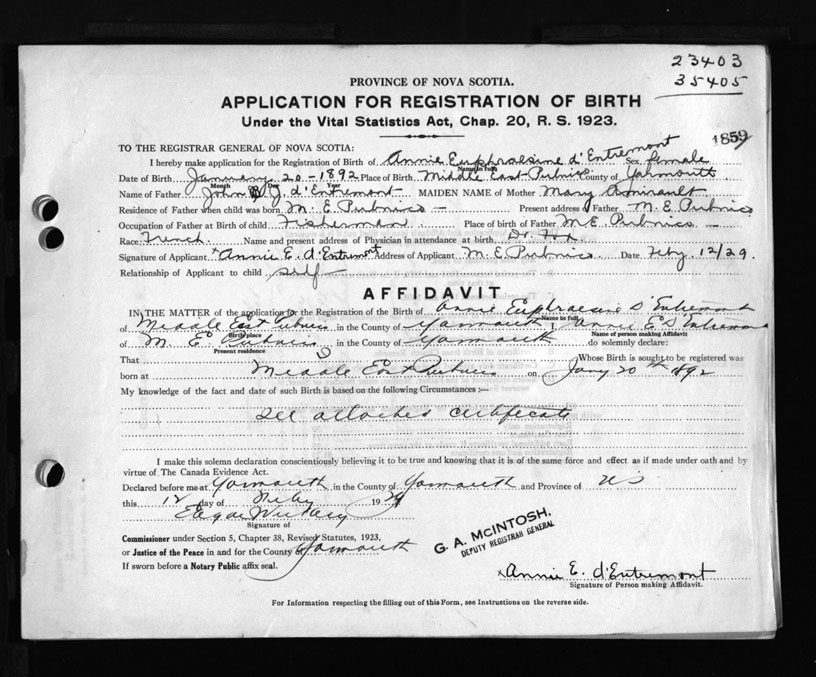 23403
35405
PROVINCE OF NOVA SCOTIA.
APPLICATION FOR REGISTRATION OF BIRTH
Under the Vital Statistics Act, Chap. 20, R. S. 1923.
1859
TO THE REGISTRAR GENERAL OF NOVA SCOTIA:
I hereby make application for the Registration of Birth of Annie Euphrasine d'Entremont Sex female
Name in full
Date of Birth January 20-1892 Place of Birth Middle East Pubnico County of Yarmouth
Month Day Year
Name of Father John J. d'Entremont MAIDEN NAME of Mother Mary Amirault
Residence of Father when child was born M. E. Pubnico Present address of Father M. E. Pubnico
Occupation of Father at Birth of child Fisherman Place of birth of Father M. E. Pubnico
Race French Name and present address of Physician in attendance at birth Dr. Fox
Signature of Applicant x Annie E. d'Entremont Address of Applicant M. E. Pubnico Date Feby 12/29.
Relationship of Applicant to child self
AFFIDAVIT
IN THE MATTER of the application for the Registration of the Birth of Annie Euphrasine D'Entremont
Name in full
of Middle East Pubnico in the County of Yarmouth I, Annie E D'Entremont
Birth place Name of person making Affidavit
of M. E. Pubnico in the County of Yarmouth do solemnly declare:
Present residence
That I Whose Birth is sought to be registered was
born at Middle East Pubnico on Jany 20th 1892
My knowledge of the fact and date of such Birth is based on the following Circumstances :—
see attached certificate
I make this solemn declaration conscientiously believing it to be true and knowing that it is of the same force and effect as if made under oath and by
virtue of The Canada Evidence Act.
Declared before me at Yarmouth in the County of Yarmouth and Province of NS
this 12 day of Feby 1929
Signature of
Commissioner under Section 5, Chapter 38, Revised Statutes, 1923,
or Justice of the Peace in and for the County of Yarmouth
If sworn before a Notary Public affix seal.
G. A. McINTOSH.
DEPUTY REGISTRAR GENERAL
x Annie E. d'Entremont
Signature of Person making Affidavit.
For Information respecting the filling out of this Form, see Instructions on the reverse side.